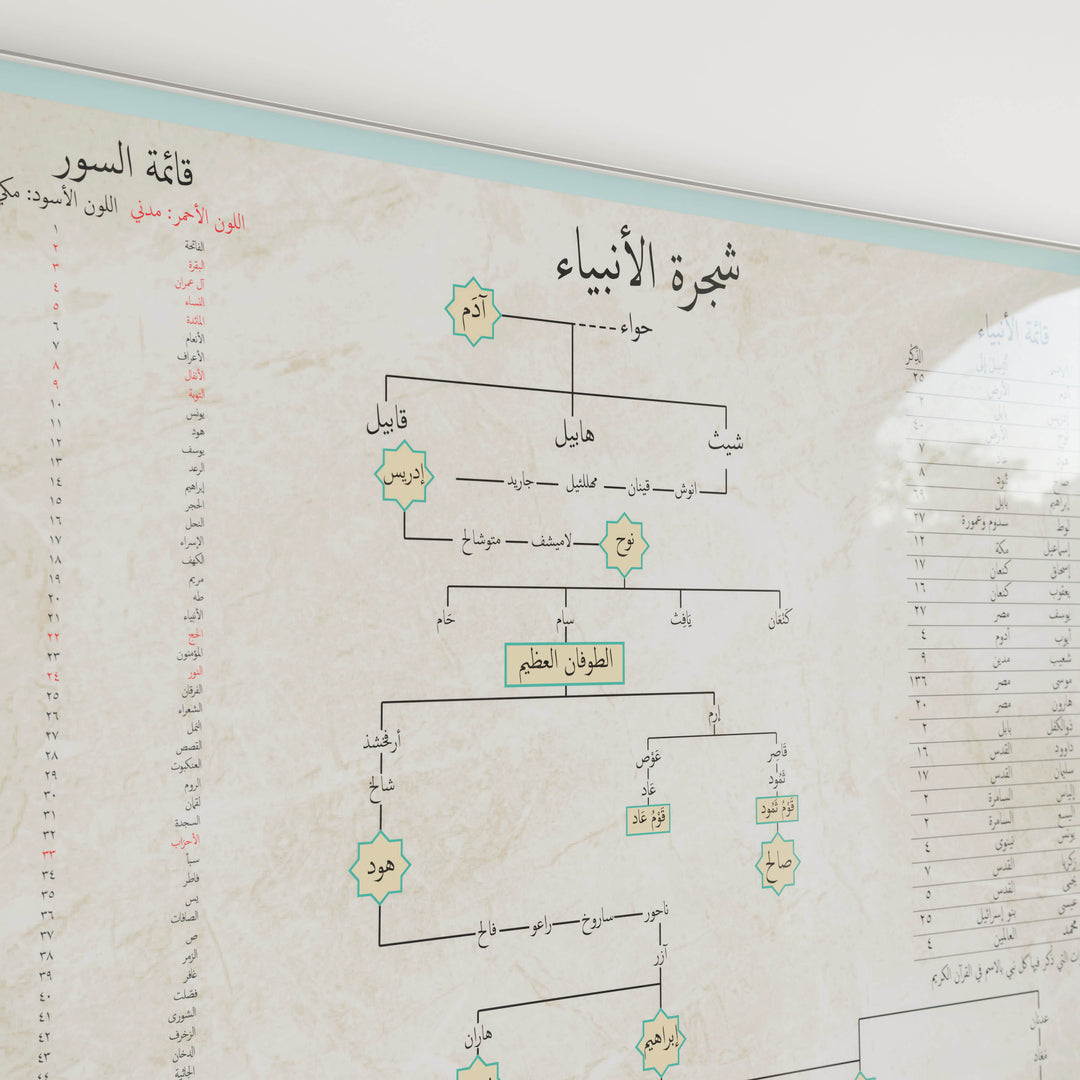 قائمة السور
اللون الأحمر: مدني اللون الأسود: مكي
الفاتحة ١
البقرة ٢
آل عمران ٣
النساء ٤
المائدة ٥
الأنعام ٦
الأعراف ٧
الأنفال ٨
التوبة ٩
يونس ١٠
هود ١١
يوسف ١٢
الرعد ١٣
إبراهيم ١٤
الحجر ١٥
النحل ١٦
الإسراء ١٧
الكهف ١٨
مريم ١٩
طه ٢٠
الأنبياء ٢١
الحج ٢٢
المؤمنون ٢٣
النور ٢٤
الفرقان ٢٥
الشعراء ٢٦
النمل ٢٧
القصص ٢٨
العنكبوت ٢٩
الروم ٣٠
لقمان ٣١
السجدة ٣٢
الأحزاب ٣٣
سبأ ٣٤
فاطر ٣٥
يس ٣٦
الصافات ٣٧
ص ٣٨
الزمر ٣٩
غافر ٤٠
فصلت ٤١
الشورى ٤٢
الزخرف ٤٣
الدخان ٤٤
الجاثية
شجرة الأنبياء
حواء آدَم
شيث هابيل قابيل
انوش قينان مهللئيل جاريد إدريس
نوح لاميشف متوشالح
كَنْعَان يَافِث سام حَام
الطوفان العظيم
إرم أرفخشذ
قَاصِر عَوْص
ثَمُود عَاد شالخ
قَوْمُ ثَمُود قَوْمُ عَاد
صالح هود
ناحور ساروخ راعو فالح
آزر
إبراهيم هاران
قائمة الأنبياء
أرسل إلى الذِكر
آدم الأرض ٢٥
بابل ٢
نوح الأرض
هود عاد ٧
ثمود ٨
إبراهيم بابل ٦٩
لوط سدوم وعمورة ٢٧
إسماعيل مكة ١٢
إسحاق كنعان ١٧
يعقوب كنعان ١٦
يوسف مصر ٢٧
أيوب أدوم ٤
شعيب مدين ٩
موسى مصر ١٣٦
هارون مصر ٢٠
ذوالكفل بابل ٢
داوود القدس ١٦
سليمان القدس ١٧
إلياس السامرة ٢
اليسع السامرة ٢
يونس نينوى ٤
زكريا القدس ٧
يحيى القدس ٥
عيسى بنو إسرائيل ٢٥
محمد العالمين ٤
التي ذُكر فيها كل نبي بالاسم في القرآن الكريم
عدنان
مَعَاد